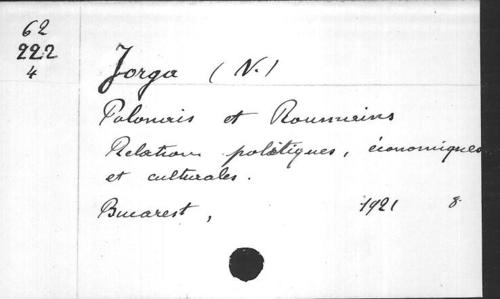 62
222
4
Jorga (N.)
Polonais et Roumains
Relations politiques, économiques
et culturales.
Bucarest, 1921 8